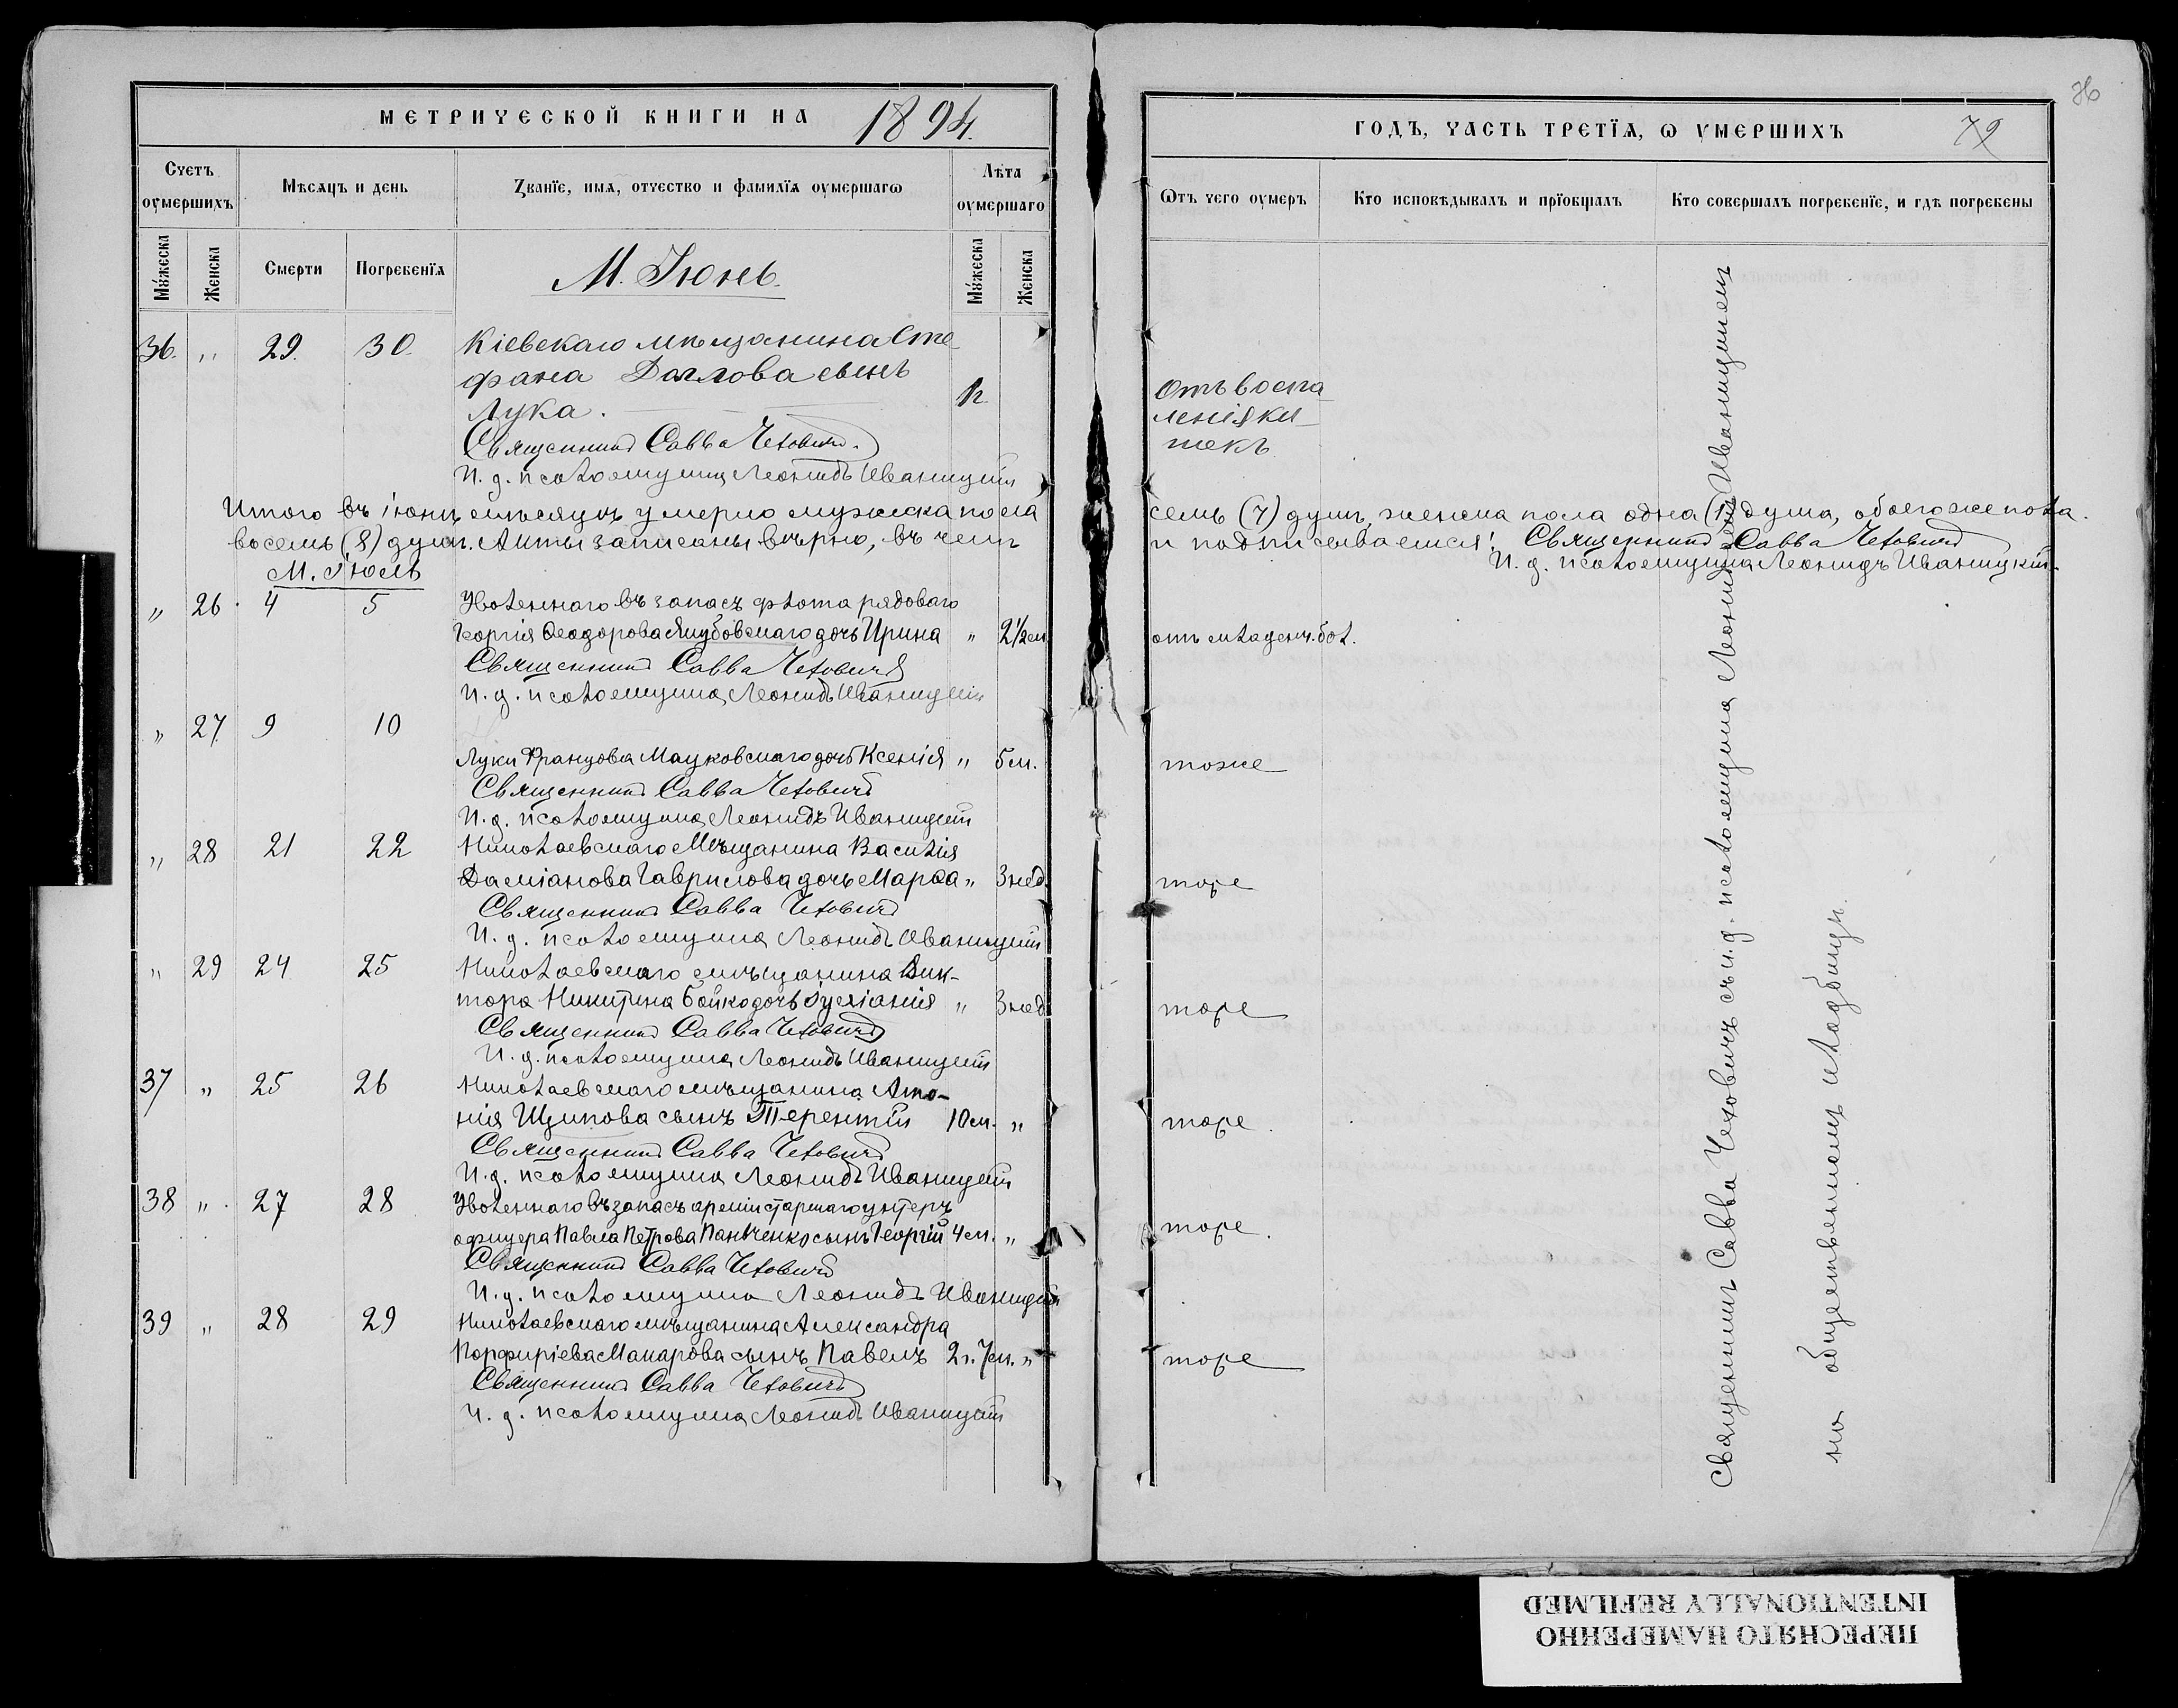 МЕТРИЧЕСКОЙ КНИГИ НА 1894.
Счетъ оумершихъ
Мѣсяцъ и день
Званіе, имя, отчество и фамилія оумершагѡ
Лѣта оумершаго
Мꙋжеска
Женска
Смерти
Погребенія
Мꙋжеска
Женска
М. Іюнь.
36. " 29. 30. Кіевскаго мѣщанина Сте-
фана Доллова сынъ
Лука.
Священникъ Савва Чеховичъ
И. д. псаломщика Леонидъ Иваницкій
Итого въ іюнѣ мѣсяцѣ умерло мужеска пола
восемь (8) душъ. Акты записаны вѣрно, въ чемъ
М. Іюль
" 26. 4 5 Уволеннаго въ запасъ флота рядоваго
Георгія Ѳеодорова Якубовскаго дочь Ирина " 2½ м.
Священникъ Савва Чеховичъ
И. д. псаломщика Леонидъ Иваницкій
" 27. 9 10
Луки Францова Мацковскаго дочь Ксенія " 5 м.
Священникъ Савва Чеховичъ
И. д. псаломщика Леонидъ Иваницкій
" 28 21 22 Николаевскаго Мѣщанина Василія
Даміанова Гаврилова дочь Марѳа " 3 нед.
Священникъ Савва Чеховичъ
И. д. псаломщика Леонидъ Иваницкій
" 29 24 25 Николаевскаго мѣщанина Вик-
тора Никитина Бойко дочь Іуліанія " 3 нед.
Священникъ Савва Чеховичъ
И. д. псаломщика Леонидъ Иваницкій
37 " 25 26 Николаевскаго мѣщанина Анто-
нія Щипова сынъ Терентій 10 м. "
Священникъ Савва Чеховичъ
И. д. псаломщика Леонидъ Иваницкій
38 " 27 28 Уволеннаго въ запасъ арміи старшаго унтеръ
офицера Павла Петрова Панченко сынъ Георгій 4 м. "
Священникъ Савва Чеховичъ
И. д. псаломщика Леонидъ Иваницкій
39 " 28 29 Николаевскаго мѣщанина Александра
Порфиріева Макарова сынъ Павелъ 2 г. 7 м. "
Священникъ Савва Чеховичъ
И. д. псаломщика Леонидъ Иваницкій
36
ГОДЪ, ЧАСТЬ ТРЕТІЯ, Ѡ ОУМЕРШИХЪ 79
Ѿтъ чего оумеръ
Кто исповѣдывалъ и пріобщалъ
Кто совершалъ погребеніе, и гдѣ погребены
Отъ воспа-
ленія ки-
шекъ
семь (7) душъ, женска пола одна (1) душа, обоего же пола
и подписываемся: Священникъ Савва Чеховичъ
И. д. псаломщика Леонидъ Иваницкій
отъ младенч. бол.
тоже
тоже
тоже
тоже.
тоже.
тоже
Священникъ Савва Чеховичъ съ и. д. псаломщика Леонидомъ Иваницкимъ
на общественномъ кладбищѣ.
ПЕРЕСНЯТО НАМЕРЕННО
INTENTIONALLY REFILMED